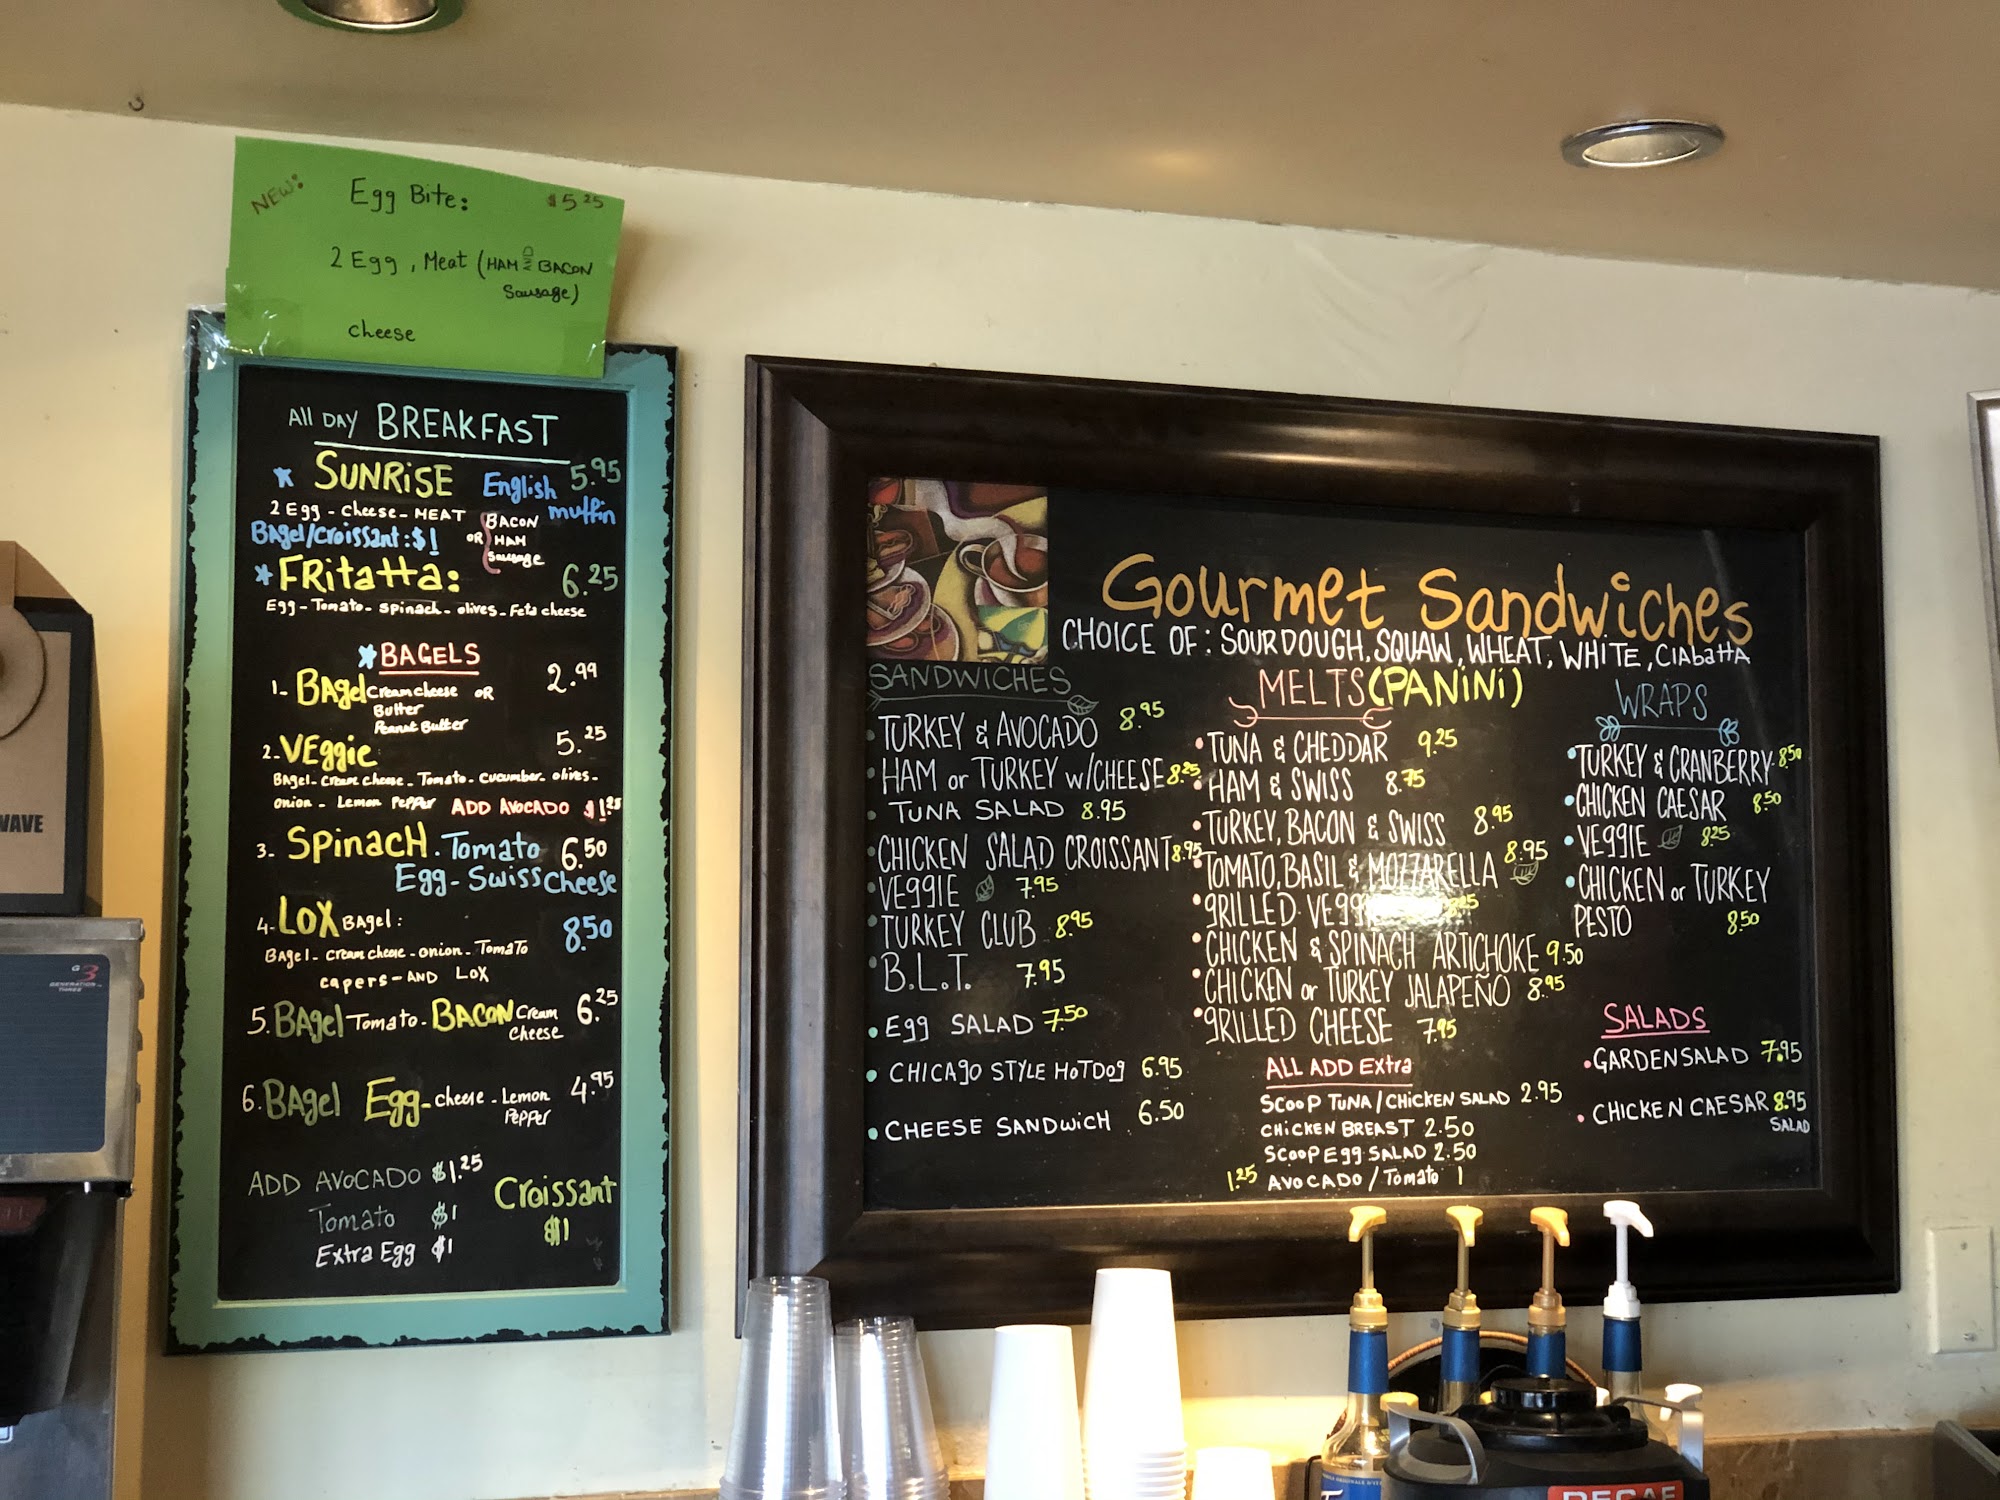 NEW: Egg Bite: $5.25
2 Egg, Meat (HAM AND BACON
Sausage)
cheese
All DAY BREAKFAST
* SUNRiSE English muffin 5.95
2 Egg - Cheese - MEAT
OR BACON
HAM
Sausage
Bagel/Croissant: $1
* FRitatta: 6.25
Egg - Tomato - spinach - olives - Feta cheese
* BAGELS
1- BAgel creamcheese OR 2.99
Butter
Peanut Butter
2- VEggie 5.25
Bagel - cream cheese - Tomato - cucumber - olives -
onion - Lemon Pepper ADD AVOCADO $1.25
3- SpinacH. Tomato 6.50
Egg - Swiss Cheese
4- LOX BAgel: 8.50
Bagel - cream cheese - onion - Tomato
capers - AND LOX
5. BAgel Tomato - BACON Cream cheese 6.25
6. BAgel Egg - cheese - Lemon Pepper 4.95
ADD AVOCADO $1.25
Tomato $1
Extra Egg $1
Croissant
$1
Gourmet Sandwiches
CHOICE OF: SOURDOUGH, SQUAW, WHEAT, WHITE, CIAbattA
SANDWICHES
TURKEY & AVOCADO 8.95
HAM or TURKEY w/CHEESE 8.25
TUNA SALAD 8.95
CHICKEN SALAD CROISSANT 8.95
VEGGIE 7.95
TURKEY CLUB 8.95
B.L.T. 7.95
Egg SALAD 7.50
CHICAgO STYLE HOTDOg 6.95
CHEESE SANDWiCH 6.50
MELTS (PANiNi)
TUNA & CHEDDAR 9.25
HAM & SWISS 8.75
TURKEY, BACON & SWISS 8.95
TOMATO, BASIL & MOZZARELLA 8.95
gRILLED VEgg
CHICKEN & SPINACH ARTICHOKE 9.50
CHICKEN or TURKEY JALAPEÑO 8.95
gRILLED CHEESE 7.95
ALL ADD Extra
SCOOP TUNA / CHICKEN SALAD 2.95
CHICKEN BREAST 2.50
SCOOP Egg SALAD 2.50
1.25 AVOCADO / Tomato 1
WRAPS
TURKEY & CRANBERRY 8.50
CHICKEN CAESAR 8.50
VEGGIE 8.25
CHICKEN or TURKEY
PESTO 8.50
SALADS
GARDEN SALAD 7.95
CHICKEN CAESAR 8.95
SALAD
WAVE
G3
GENERATION THREE
DECAF